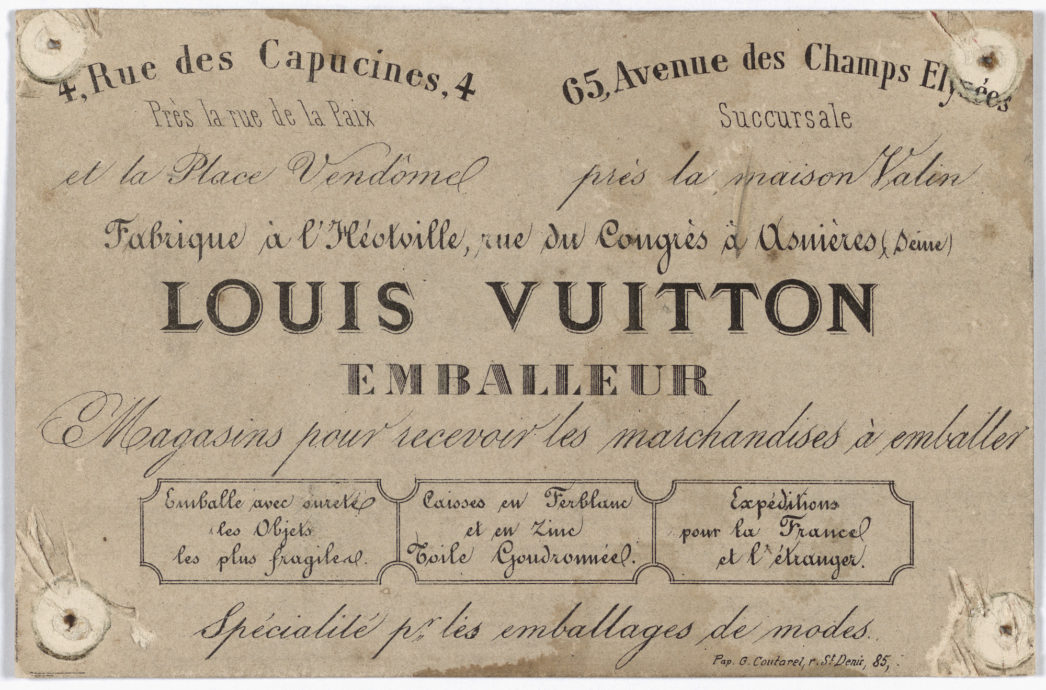 4, Rue des Capucines, 4
Près la rue de la Paix
et la Place Vendôme
65, Avenue des Champs Elysées
Succursale
près la maison Valin
Fabrique à l'Héotville, rue du Congrès à Asnières (Seine)
LOUIS VUITTON
EMBALLEUR
Magasins pour recevoir les marchandises à emballer
Emballe avec sureté
les Objets
les plus fragiles.
Caisses en Ferblanc
et en Zinc
Toile Goudronnée.
Expéditions
pour la France
et l'étranger.
Spécialité pr. les emballages de modes.
Pap. G. Coutarel, r. St Denis, 85,